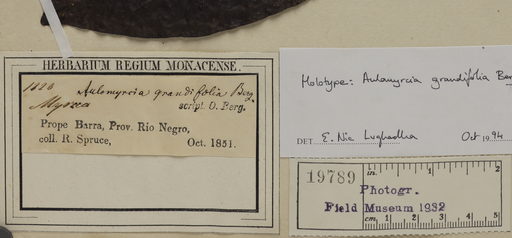 HERBARIUM REGIUM MONACENSE.
1820
Aulomyrcia grandifolia Berg.
Myrcia
script. O. Berg.
Prope Barra, Prov. Rio Negro,
coll. R. Spruce, Oct. 1851.
Holotype: Aulomyrcia grandifolia Berg
DET. E. Nic Lughadha Oct 1994
19789
in. 1 2
Photogr.
Field Museum 1932
cm. 1 2 3 4 5